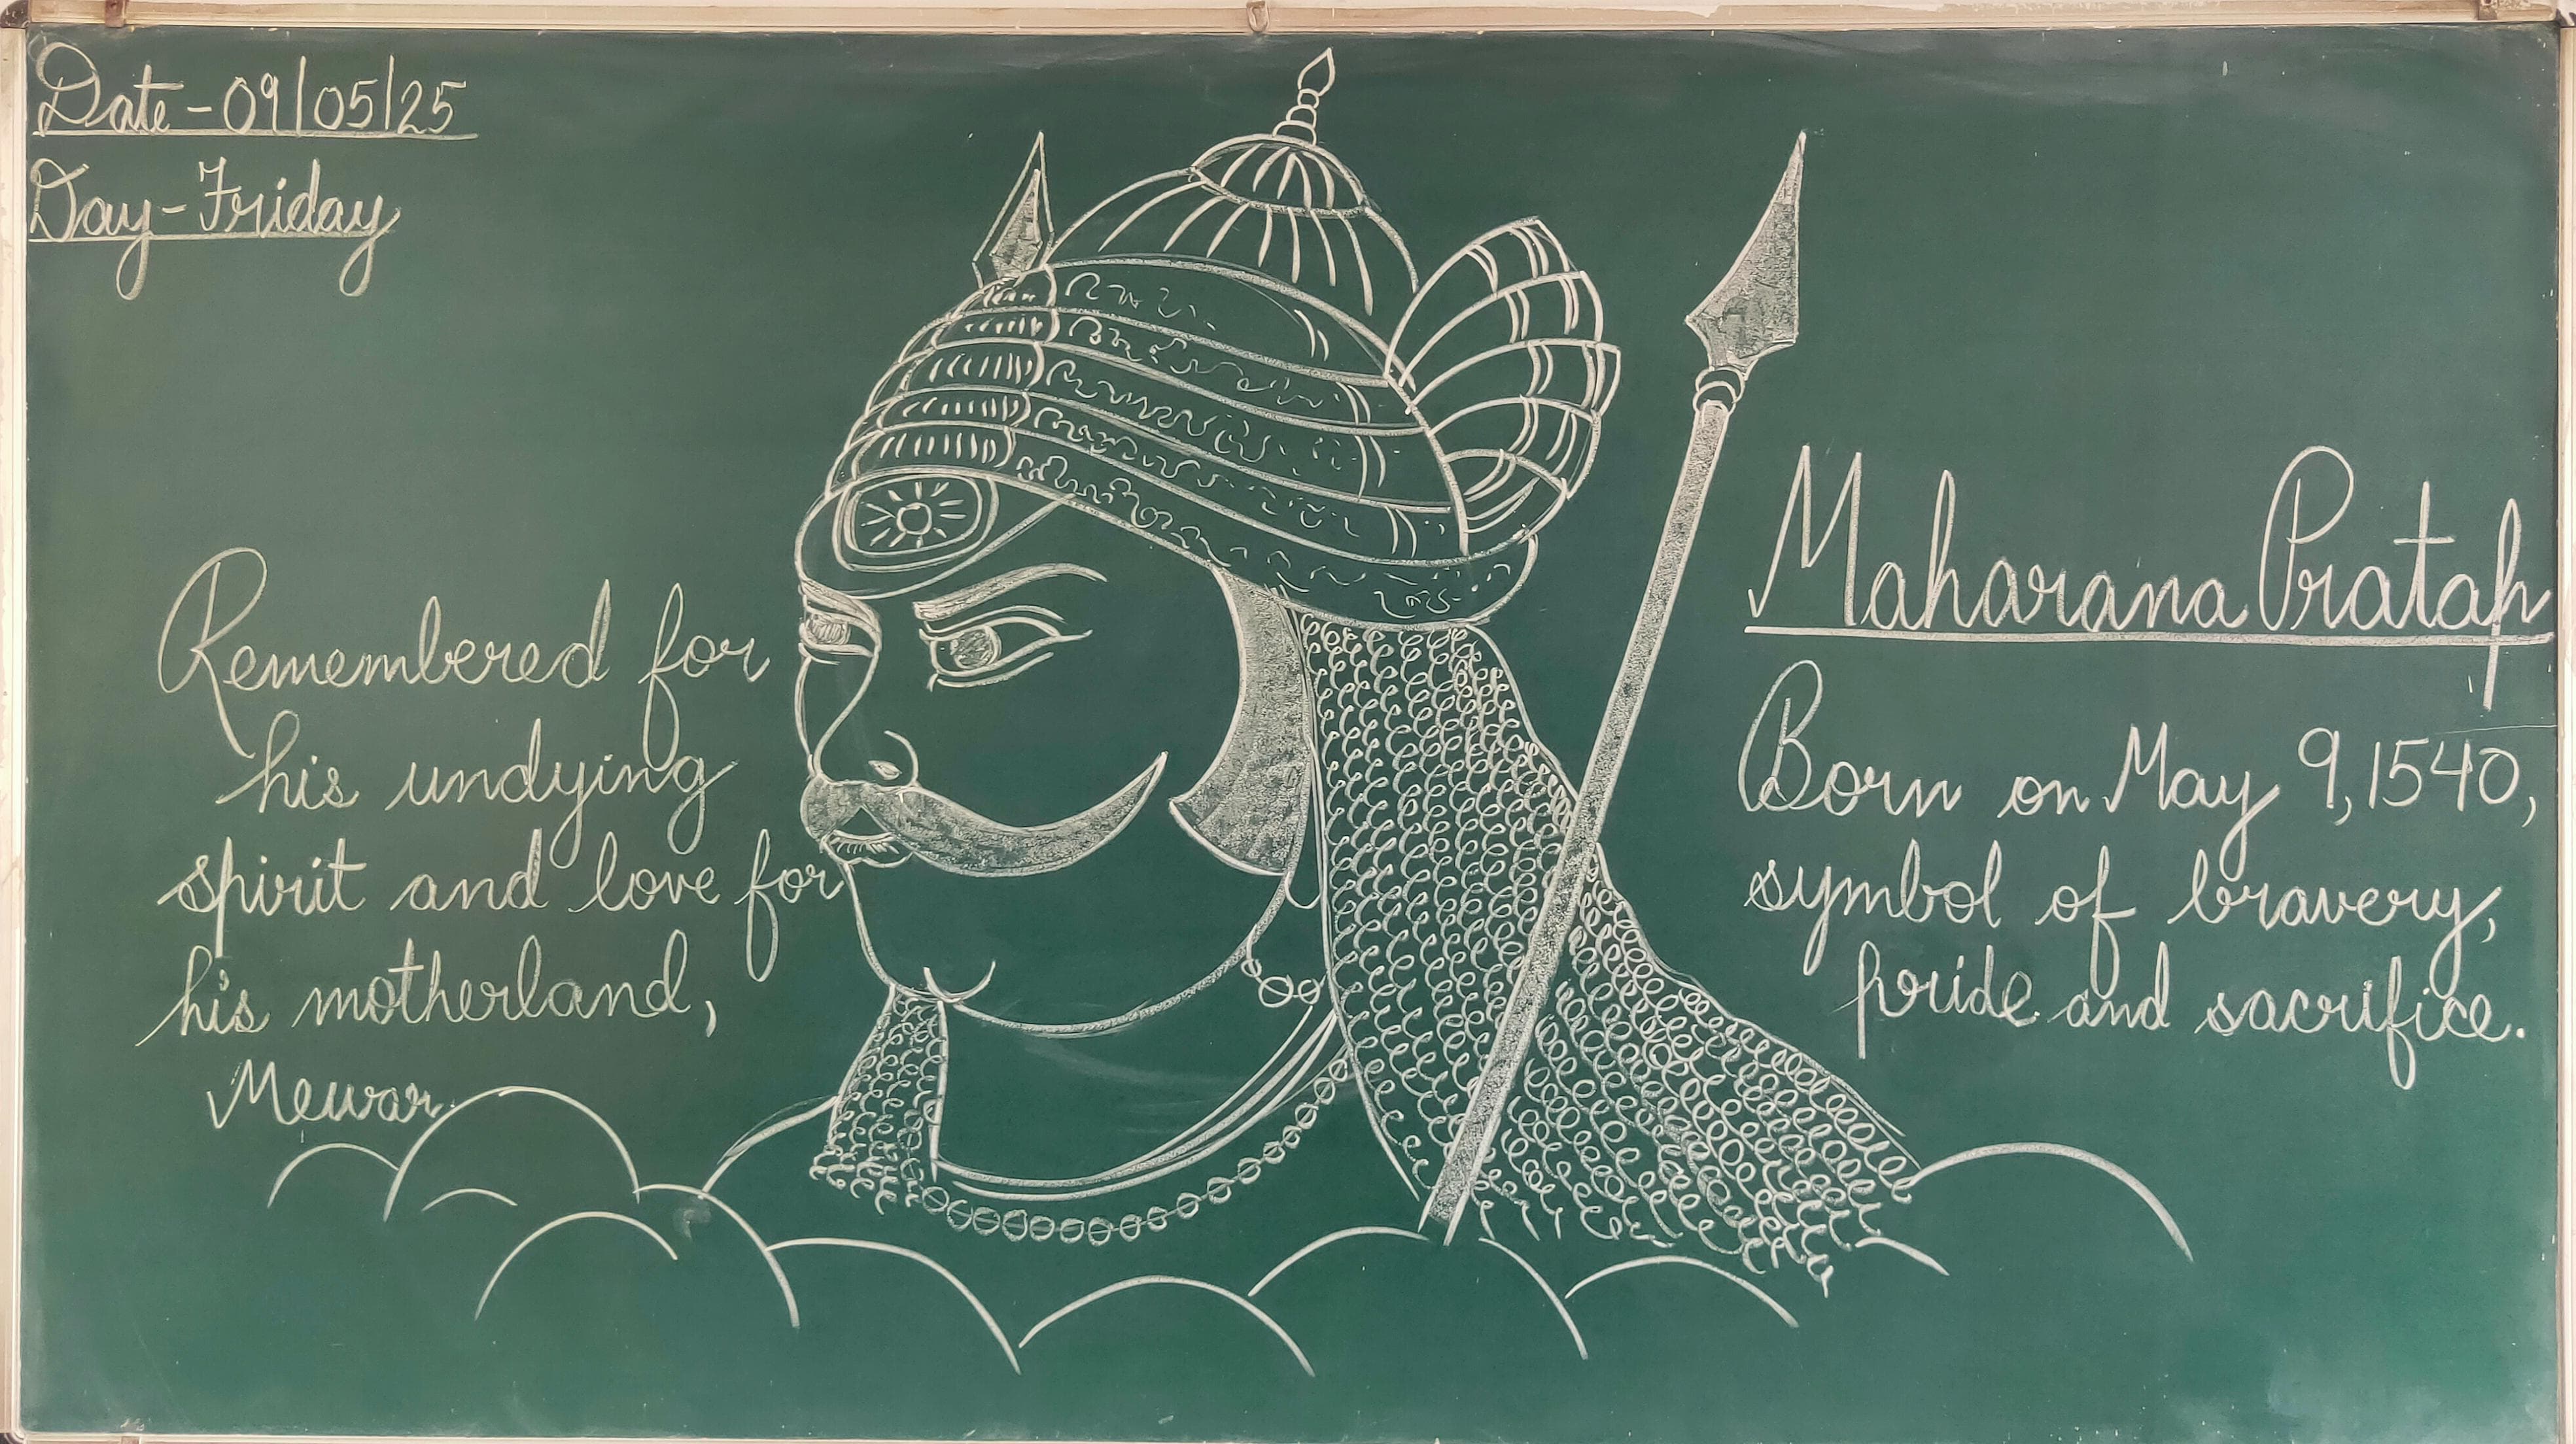 Date - 09/05/25
Day - Friday
Remembered for
his undying
spirit and love for
his motherland,
Mewar.
Maharana Pratap
Born on May 9, 1540,
symbol of bravery,
pride and sacrifice.